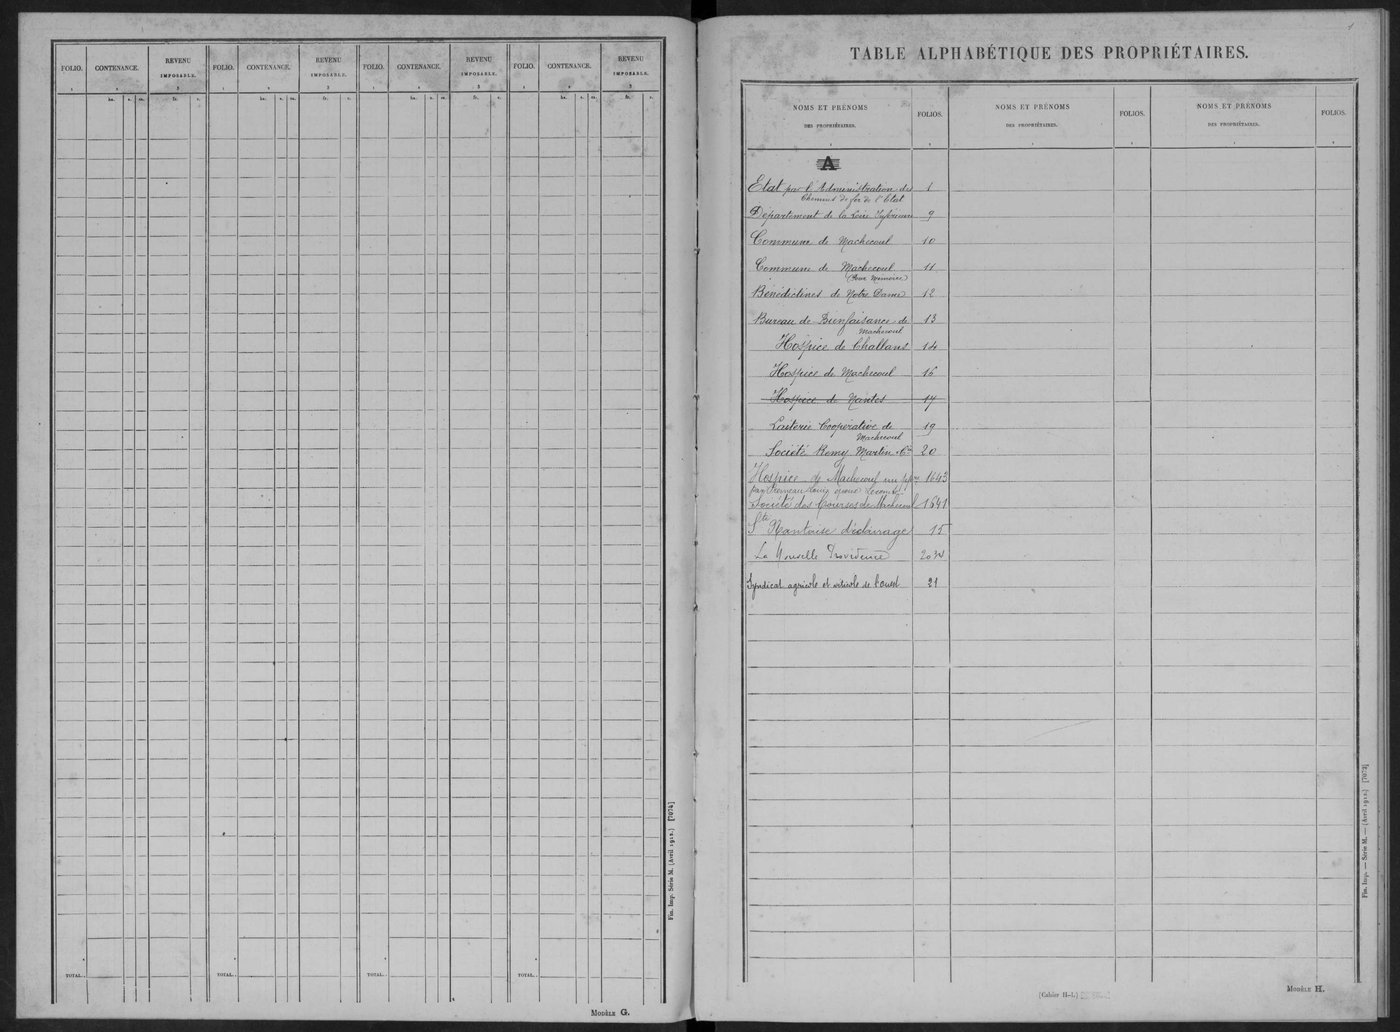 FOLIO. CONTENANCE. REVENU IMPOSABLE. FOLIO. CONTENANCE. REVENU IMPOSABLE. FOLIO. CONTENANCE. REVENU IMPOSABLE. FOLIO. CONTENANCE. REVENU IMPOSABLE.
1 2 3 1 2 3 1 2 3 1 2 3
ha. a. ca. fr. c. ha. a. ca. fr. c. ha. a. ca. fr. c. ha. a. ca. fr. c.
TOTAL. TOTAL. TOTAL. TOTAL.
Fin. Imp. Série M. (Avril 1912.) [7074]
MODÈLE G.
1
TABLE ALPHABÉTIQUE DES PROPRIÉTAIRES.
NOMS ET PRÉNOMS DES PROPRIÉTAIRES. FOLIOS. NOMS ET PRÉNOMS DES PROPRIÉTAIRES. FOLIOS. NOMS ET PRÉNOMS DES PROPRIÉTAIRES. FOLIOS.
A
Etat par l'Administration des 1
Chemins de fer de l'Etat
Département de la Loire Inférieure 9
Commune de Machecoul 10
Commune de Machecoul 11
(Pour Mémoire)
Bénédictines de Notre Dame 12
Bureau de Bienfaisance de 13
Machecoul
Hospice de Challans 14
Hospice de Machecoul 16
Hospice de Nantes 17
Laiterie Coopérative de 19
Machecoul
Société Remy Martin & Cie 20
Hospice de Machecoul 1643
par
Société des Courses de Machecoul 1641
Sté Nantaise d'éclairage 15
La Nouvelle Providence 2034
Syndicat agricole et viticole de l'ouest 21
Fin. Imp. — Série M. — (Avril 1912.) [7073]
[Cahier H-I.]
MODÈLE H.